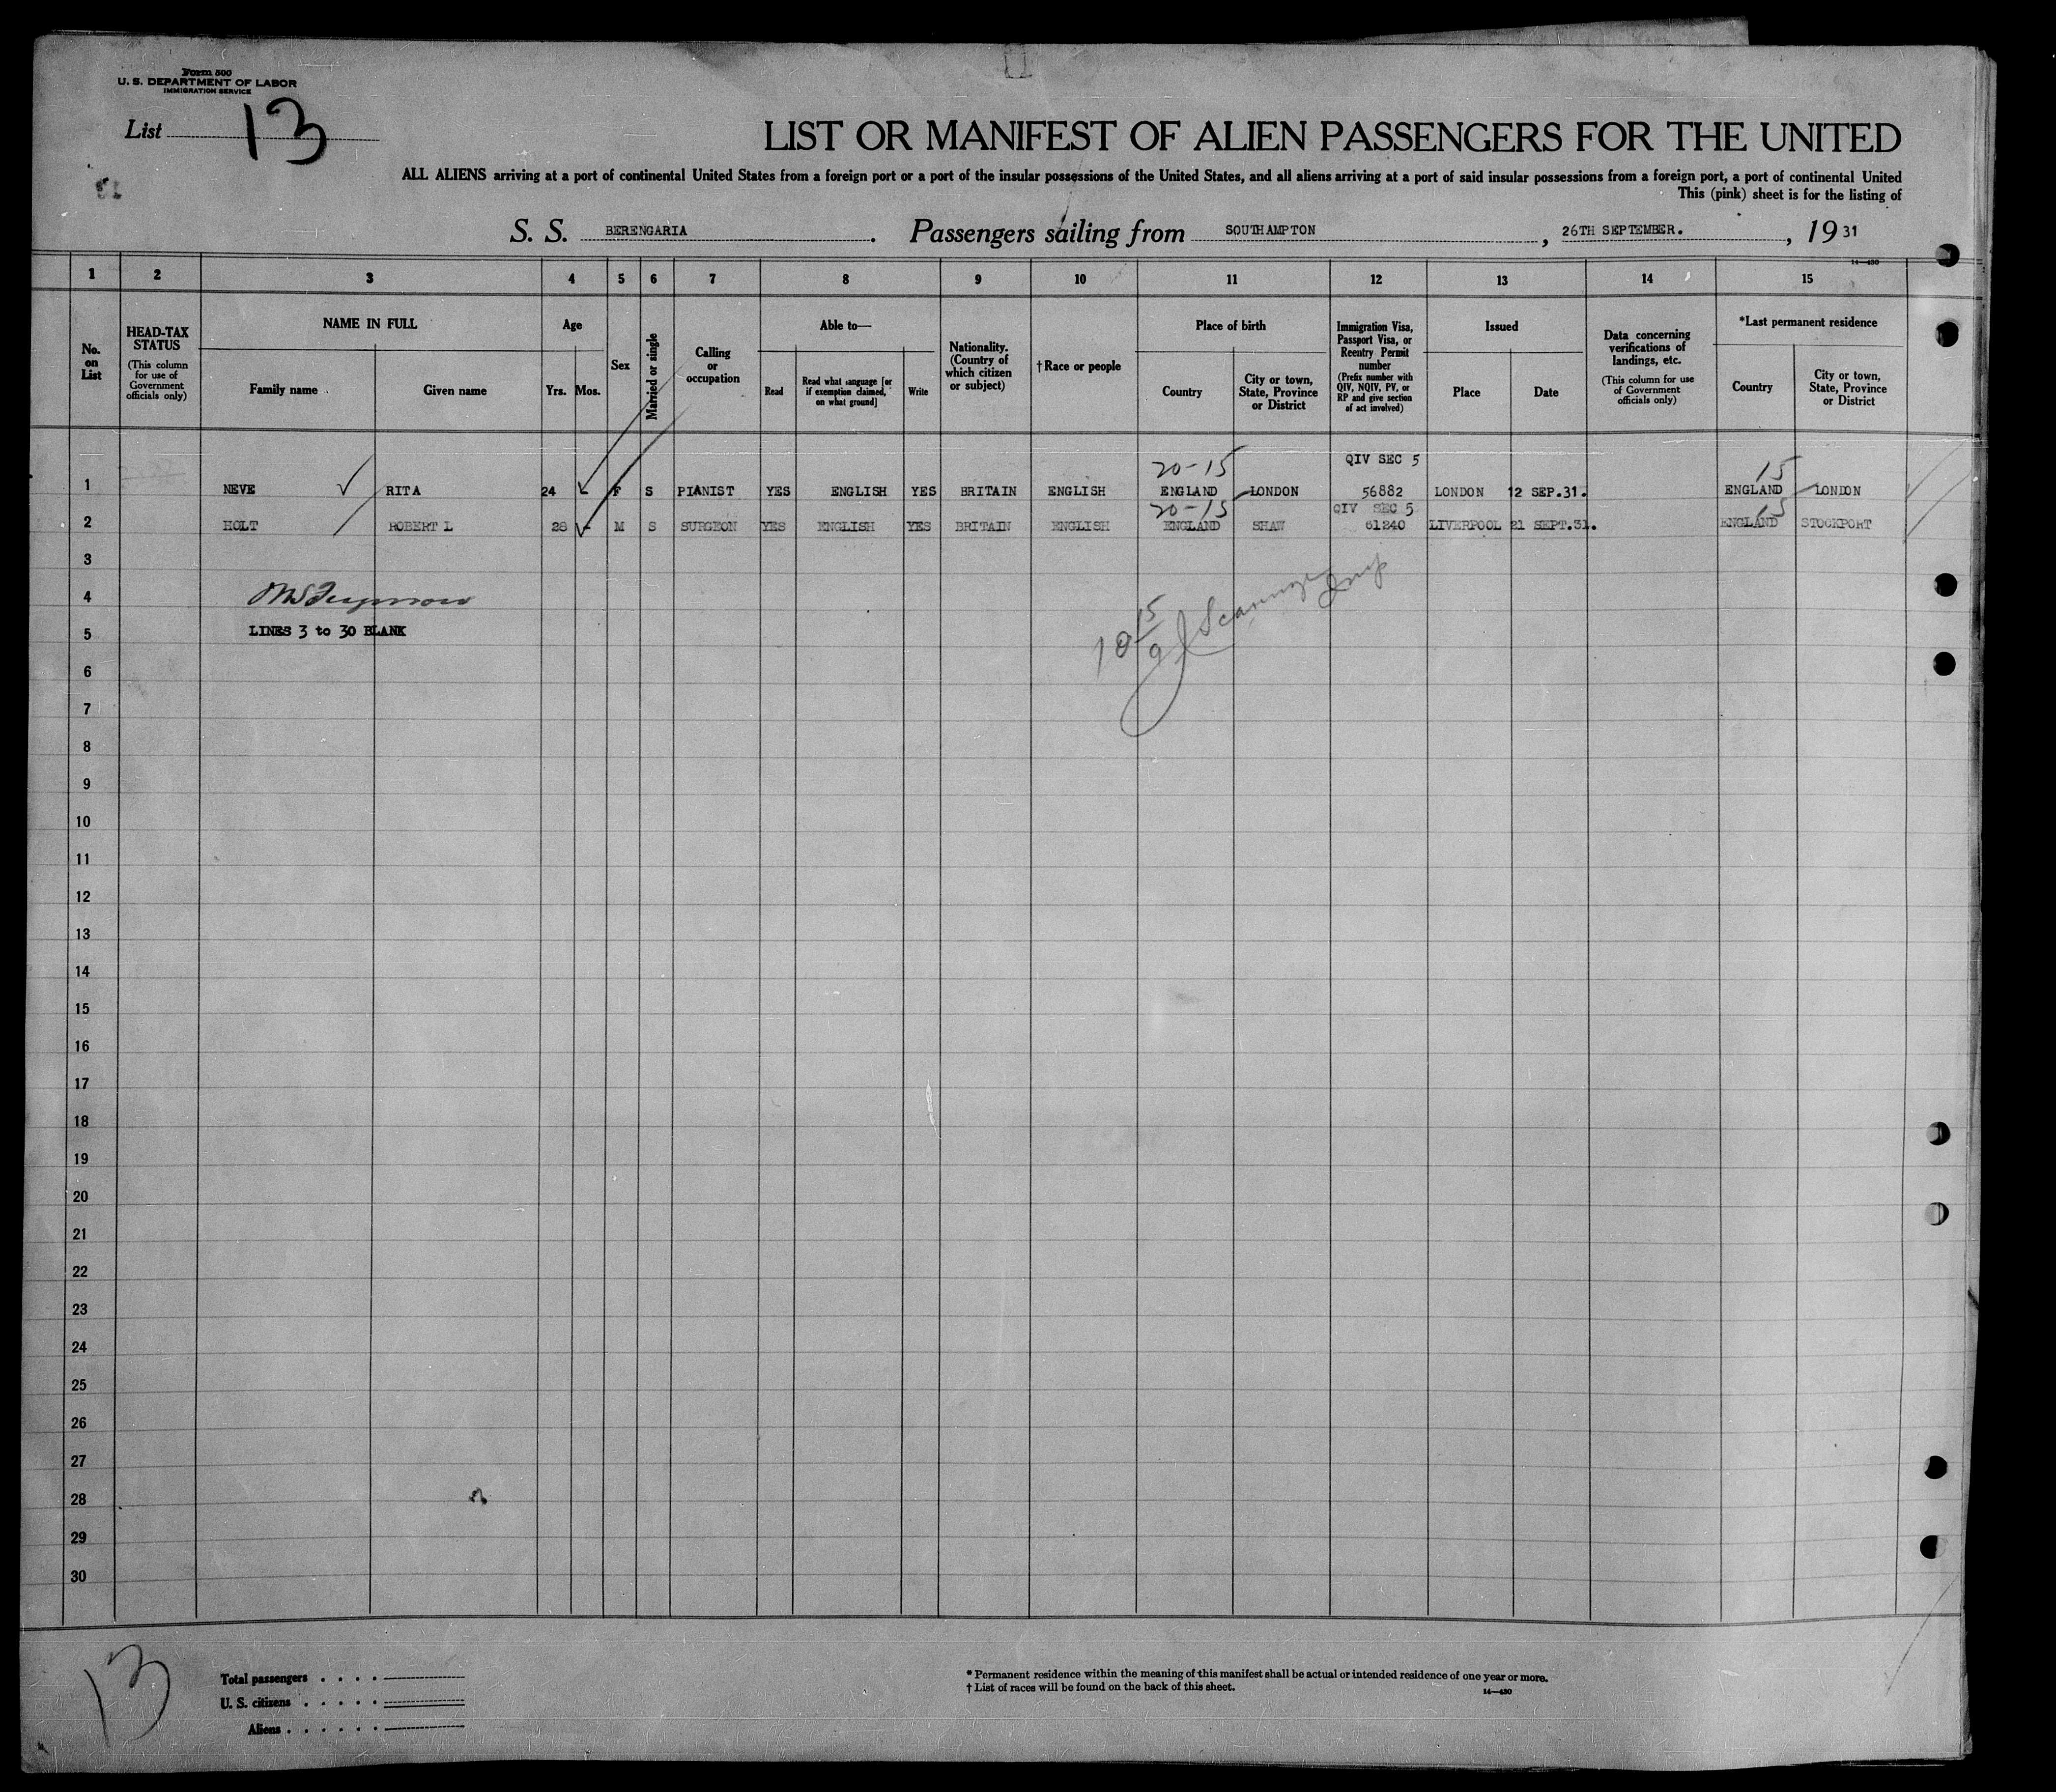 Form 500
U. S. DEPARTMENT OF LABOR
IMMIGRATION SERVICE
List 13
LIST OR MANIFEST OF ALIEN PASSENGERS FOR THE UNITED
ALL ALIENS arriving at a port of continental United States from a foreign port or a port of the insular possessions of the United States, and all aliens arriving at a port of said insular possessions from a foreign port, a port of continental United
This (pink) sheet is for the listing of
S. S. BERENGARIA. Passengers sailing from SOUTHAMPTON, 26TH SEPTEMBER., 1931
14—430
1 2 3 4 5 6 7 8 9 10 11 12 13 14 15
No. on List
HEAD-TAX STATUS
(This column for use of Government officials only)
NAME IN FULL
Family name Given name
Age
Yrs. Mos.
Sex
Married or single
Calling or occupation
Able to—
Read
Read what language [or if exemption claimed, on what ground]
Write
Nationality. (Country of which citizen or subject)
†Race or people
Place of birth
Country
City or town, State, Province or District
Immigration Visa, Passport Visa, or Reentry Permit number
(Prefix number with QIV, NQIV, PV, or RP and give section of act involved)
Issued
Place Date
Data concerning verifications of landings, etc.
(This column for use of Government officials only)
*Last permanent residence
Country
City or town, State, Province or District
20-15 QIV SEC 5 15
1 NEVE RITA 24 - F S PIANIST YES ENGLISH YES BRITAIN ENGLISH ENGLAND LONDON 56882 LONDON 12 SEP.31. ENGLAND LONDON
20-15 QIV SEC 5 15
2 HOLT ROBERT L 28 - M S SURGEON YES ENGLISH YES BRITAIN ENGLISH ENGLAND SHAW 61240 LIVERPOOL 21 SEPT.31. ENGLAND STOCKPORT
3
4
5 LINES 3 to 30 BLANK
6
7
8
9
10
11
12
13
14
15
16
17
18
19
20
21
22
23
24
25
26
27
28
29
30
13
Total passengers . . . .
U. S. citizens . . . . .
Aliens . . . . . .
* Permanent residence within the meaning of this manifest shall be actual or intended residence of one year or more.
† List of races will be found on the back of this sheet.
14—430